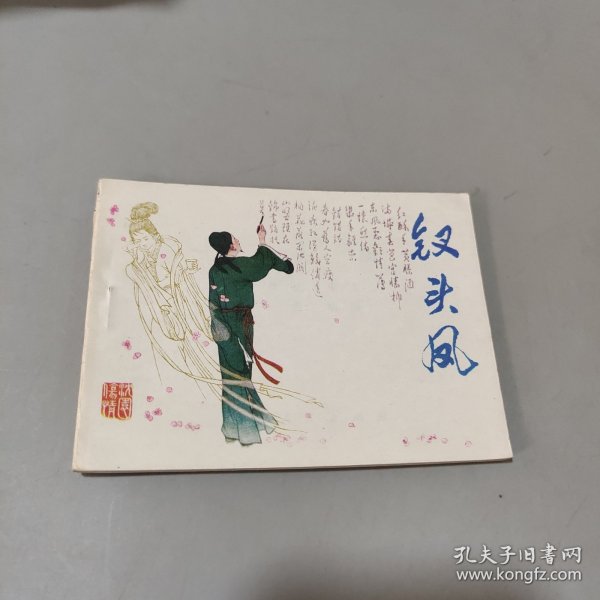 钗头凤
红酥手黄縢酒
满城春色宫墙柳
东风恶欢情薄
一怀愁绪
几年离索
错错错
春如旧人空瘦
泪痕红浥鲛绡透
桃花落闲池阁
山盟虽在
锦书难托
沈园
伤情
孔夫子旧书网
www.kongfz.com